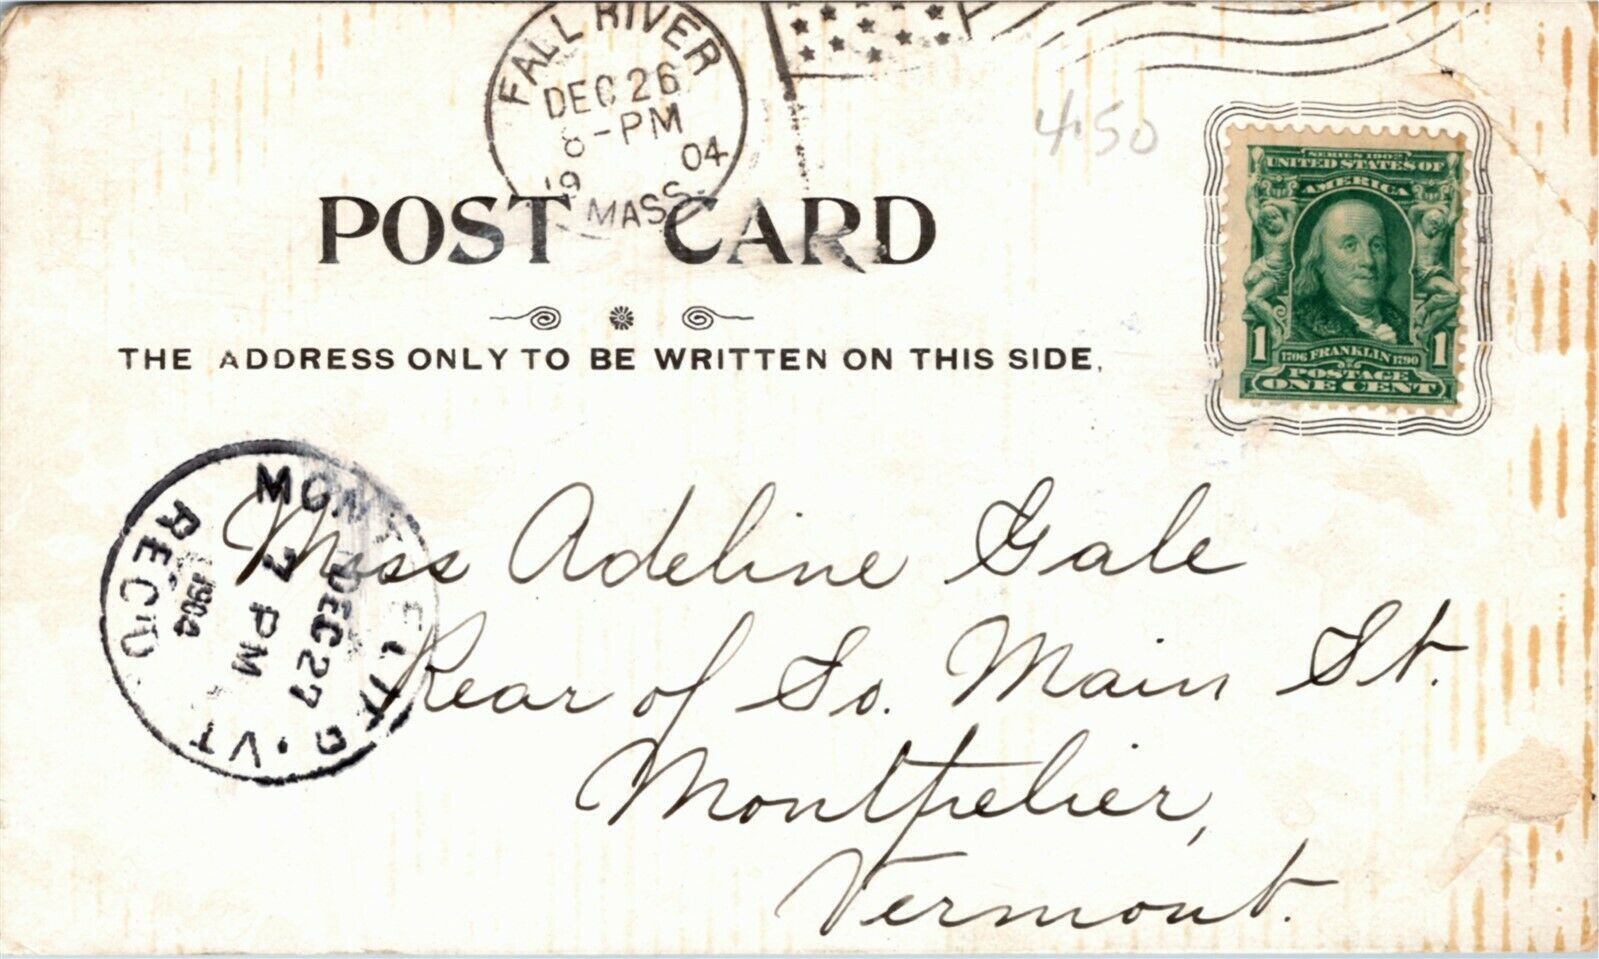 FALL RIVER
DEC 26
8-PM
19 04
MASS.
4.50
SERIES 1902
UNITED STATES OF
AMERICA
1 1706 FRANKLIN 1790 1
POSTAGE
ONE CENT
POST CARD
THE ADDRESS ONLY TO BE WRITTEN ON THIS SIDE.
MONTPELIER VT.
DEC 27
7 PM
1904
REC'D
Miss Adeline Gale
Rear of So. Main St.
Montpelier,
Vermont.